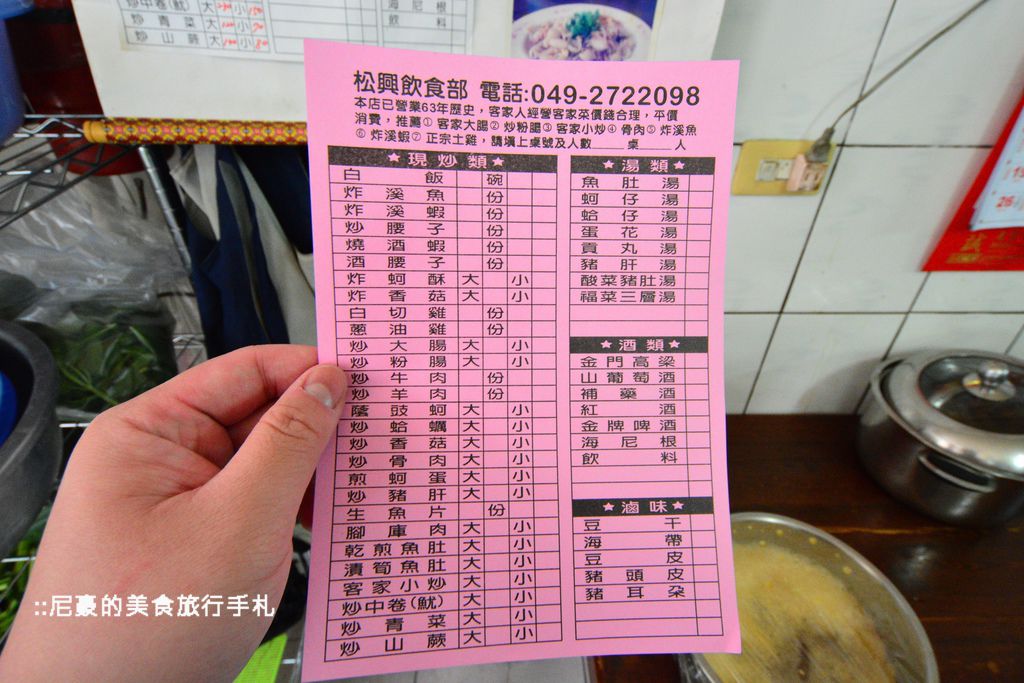 炒中卷(魷) 大 小
炒青菜 大 小
炒山蕨 大 小
海尼根
飲料
松興飲食部 電話:049-2722098
本店已營業63年歷史，客家人經營客家菜價錢合理，平價
消費，推薦① 客家大腸② 炒粉腸③ 客家小炒④ 骨肉⑤ 炸溪魚
⑥ 炸溪蝦⑦ 正宗土雞，請填上桌號及人數____桌____人
★現炒類★
白飯 碗
炸溪魚 份
炸溪蝦 份
炒腰子 份
燒酒蝦 份
酒腰子 份
炸蚵酥 大 小
炸香菇 大 小
白切雞 份
蔥油雞 份
炒大腸 大 小
炒粉腸 大 小
炒牛肉 份
炒羊肉 份
蔭豉蚵 大 小
炒蛤蠣 大 小
炒香菇 大 小
炒骨肉 大 小
煎蚵蛋 大 小
炒豬肝 大 小
生魚片 份
腳庫肉 大 小
乾煎魚肚 大 小
漬筍魚肚 大 小
客家小炒 大 小
炒中卷(魷) 大 小
炒青菜 大 小
炒山蕨 大 小
★湯類★
魚肚湯
蚵仔湯
蛤仔湯
蛋花湯
貢丸湯
豬肝湯
酸菜豬肚湯
福菜三層湯
★酒類★
金門高梁
山葡萄酒
補藥酒
紅酒
金牌啤酒
海尼根
飲料
★滷味★
豆干
海帶
豆皮
豬頭皮
豬耳朵
::尼豪的美食旅行手札